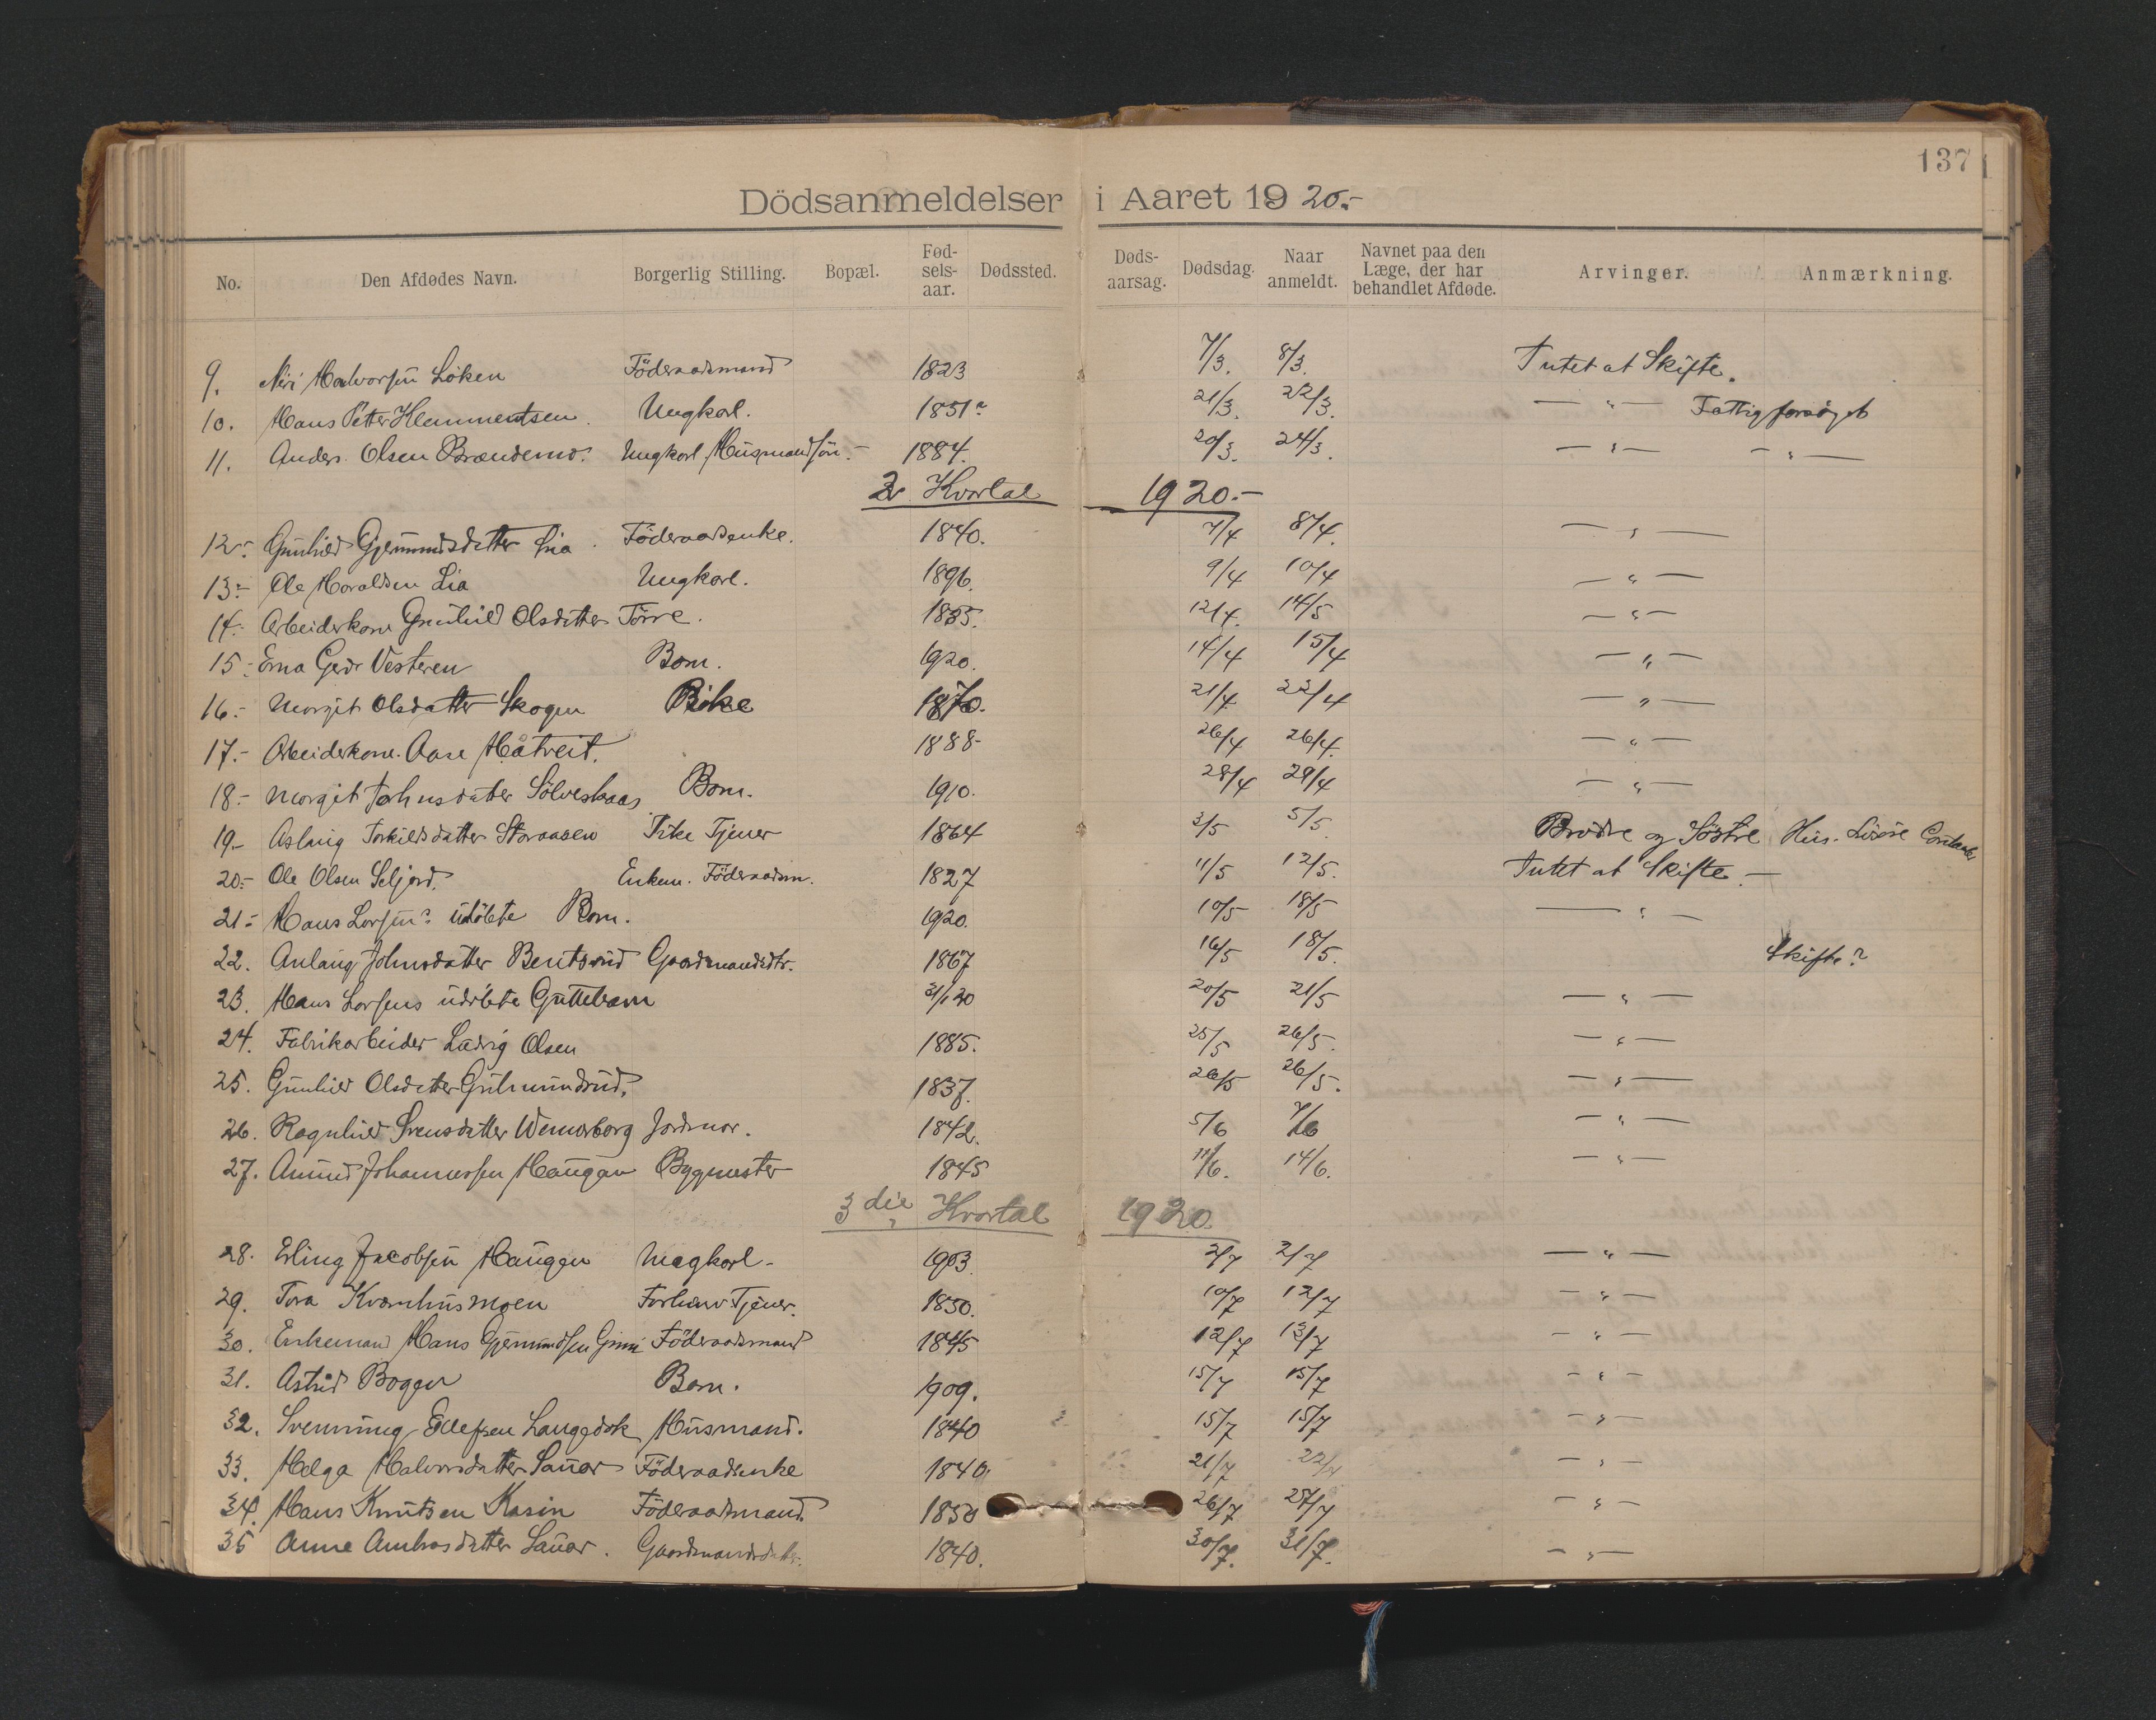 137
Dödsanmeldelser i Aaret 1920.-
No. Den Afdødes Navn. Borgerlig Stilling. Bopæl. Fød-sels-aar. Dødssted. Døds-aarsag. Dødsdag. Naar anmeldt. Navnet paa den Læge, der har behandlet Afdøde. Arvinger. Anmærkning.
9. Halvorsen Löken Föderaadsmand 1823 7/3. 8/3. Intet at Skifte.
10. Hans Petter Klemmentsen. Ungkarl. 1851? 21/3. 22/3. — " — Fattigforsöget
11. Anders Olsen Brændemo. Ungkarl Husmandssön.- 1884. 20/3. 24/3. — " — — " —
2 Kvartal 1920.-
12.- Gunhild Gjermundsdatter Lia. Föderaadsenke. 1840. 7/4 8/4. — " —
13.- Ole Haraldsen Lia Ungkarl. 1896. 9/4 10/4 — " —
14.- Arbeiderkone Gunhild Olsdatter Törre. 1855. 12/4. 14/5 — " —
15.- Erna Vesteren Barn. 1920. 14/4 15/4 — " —
16.- Margit Olsdatter Skogen Pike 1870. 21/4 22/4 — " —
17.- Arbeiderkone Aase Håtveit. 1888- 26/4 26/4. — " —
18.- Margit Johnsdatter Barn. 1910. 28/4 29/4 — " —
19.- Aslaug Torkildsdatter Storaasen Pike Tjener 1864 3/5 5/5 Brödre og Söstre
20.- Ole Olsen Seljord. Enkem. Föderaadsm. 1827 11/5 12/5. Intet at Skifte.-
21.- Hans Larsen? udöbte Barn. 1920. 10/5 18/5 — " —
22. Anlaug Johnsdatter Bentsrud Gaardmandsdtr. 1867 16/5 18/5. Skifte?
23. Hans Larsens udöbte Guttebarn 31/1 20 20/5 21/5 — " —
24. Fabrikarbeider Ludvig Olsen 1885. 25/5 26/5. — " —
25. Gunhild Olsdatter Gulmundsrud. 1837. 26/5 26/5. — " —
26. Ragnhild Svensdatter Wennerborg Jordmor. 1842. 5/6 7/6 — " —
27. Amund Johannessen Haugan Bygmester 1845 11/6. 14/6. — " —
3die Kvartal 1920.
28. Erling Jacobsen Haugen Ungkarl- 1903. 2/7 2/7 — " —
29. Tora Kværnhusmoen Forhenv Tjener. 1850. 10/7 12/7 — " —
30. Enkemand Hans Gjermundsen Föderaadsmand 1845 12/7 13/7 — " —
31. Astrid Bogen Barn. 1909. 15/7 15/7 — " —
32. Svennung Ellefsen Langedok Husmand. 1840 15/7 15/7 — " —
33. Helga Halvorsdatter Sauar Föderaadsenke 1840. 21/7 22/7 — " —
34. Hans Knutsen Kasin Föderaadsmand. 1850 26/7 27/7 — " —
35 Anne Sauar. Gaardmandsdatter. 1840. 30/7. 31/7. — " —